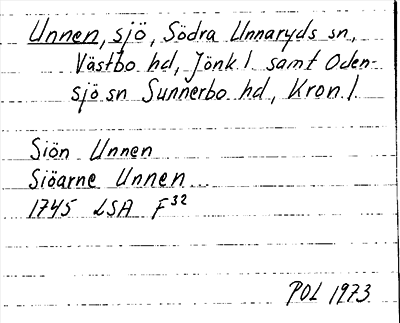 Unnen, sjö, Södra Unnaryds sn,
Västbo hd, Jönk. l samt Oden-
sjö sn Sunnerbo hd, Kron. l
Siön Unnen
Siöarne Unnen
1745 LSA F 32
POL 1973